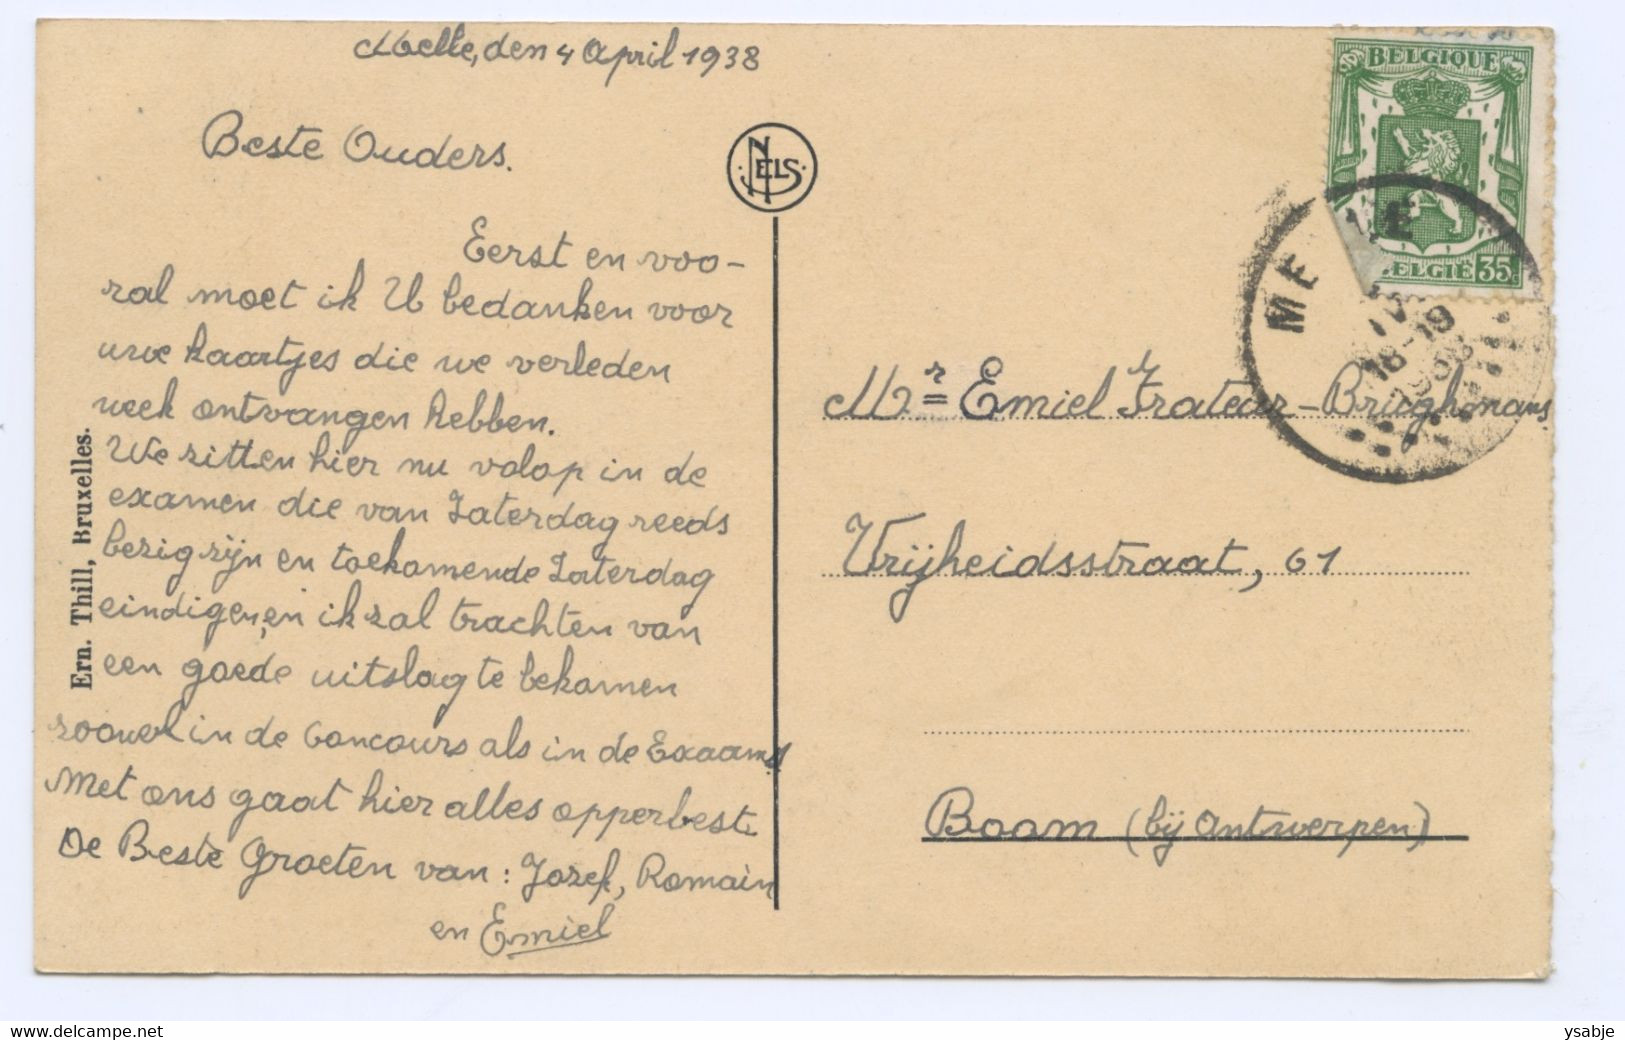 Melle, den 4 April 1938
Beste Ouders.
Eerst en voo-
ral moet ik U bedanken voor
uwe kaartjes die we verleden
week ontvangen hebben.
We zitten hier nu volop in de
examen die van Zaterdag reeds
bezig zijn en toekomende Zaterdag
eindigen, en ik zal trachten van
een goede uitslag te bekomen
zoowel in de Concours als in de Exaams
Met ons gaat hier alles opperbest.
De Beste Groeten van: Jozef, Romain
en Emiel
Ern. Thill, Bruxelles.
NELS
BELGIQUE
BELGIË 35c
ME E
IV
18-19
1938
Mr Emiel Frateur-Brughmans
Vrijheidsstraat, 61
Boom (bij Antwerpen)
ysabje